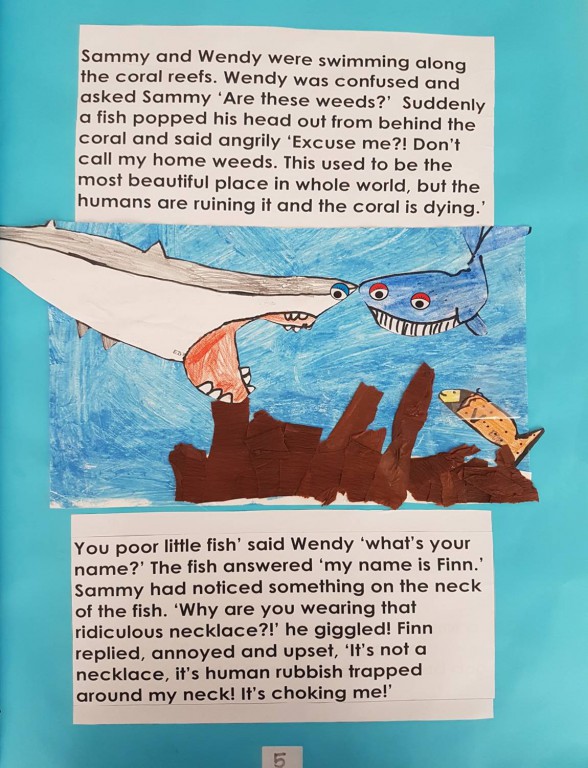 Sammy and Wendy were swimming along
the coral reefs. Wendy was confused and
asked Sammy ‘Are these weeds?’ Suddenly
a fish popped his head out from behind the
coral and said angrily ‘Excuse me?! Don’t
call my home weeds. This used to be the
most beautiful place in whole world, but the
humans are ruining it and the coral is dying.’
You poor little fish’ said Wendy ‘what’s your
name?’ The fish answered ‘my name is Finn.’
Sammy had noticed something on the neck
of the fish. ‘Why are you wearing that
ridiculous necklace?!’ he giggled! Finn
replied, annoyed and upset, ‘It’s not a
necklace, it’s human rubbish trapped
around my neck! It’s choking me!’
5